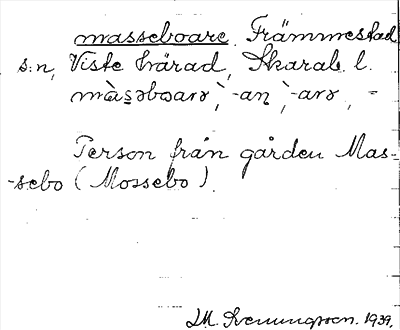 masseboare, Främmestad
s:n, Viste härad, Skarab. l.
màsəboarə, -an, -arə, -
Person från gården Mas-
-sebo (Mossebo).
M. Svenungsson. 1939,